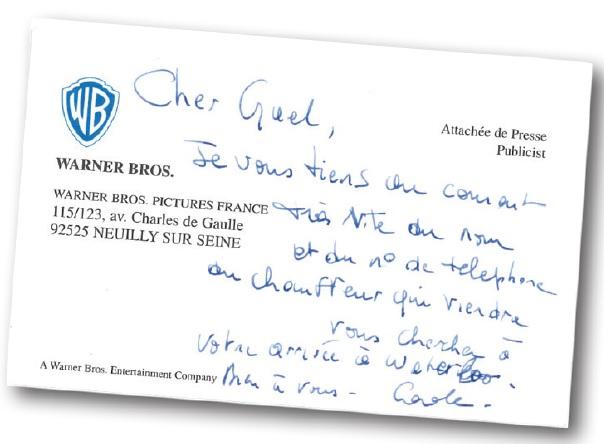 WB
WARNER BROS.
WARNER BROS. PICTURES FRANCE
115/123, av. Charles de Gaulle
92525 NEUILLY SUR SEINE
Attachée de Presse
Publicist
Cher Gael,
Je vous tiens au courant
très vite du nom
et du n° de telephone
du chauffeur qui viendra
vous chercher à
votre arrivée à Waterloo.
Bien à vous -
Carole.
A Warner Bros. Entertainment Company